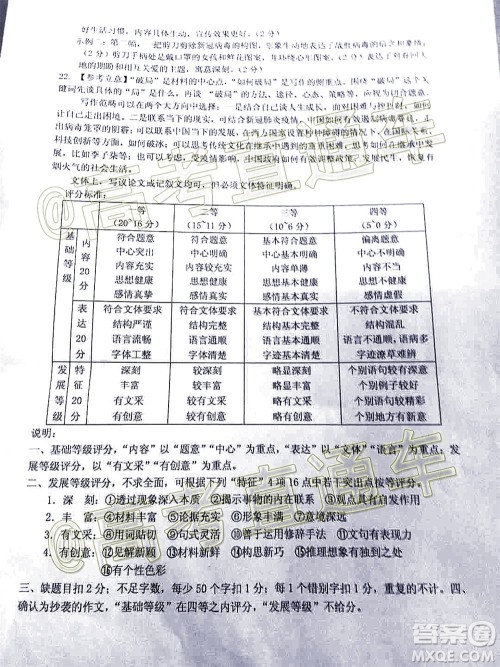 好生活习惯，内容具体生动，宣传效果更好。（2 分）
示例二：第二幅，一把剪刀剪除新冠病毒的构图，形象生动地表达了战胜病毒的信念和行动。
（2 分）剪刀手柄处是戴口罩的女孩和鲜花图案，并环绕心牢图案，（2 分）表达了对春回大
地的期盼和相互关爱的主题，寓意深刻。（2 分）
22. 【参考立意】“破局”是材料的中心点，“如何破局”是写作的照重点。围绕“破局”这个关
键词先谈具体的“局”是什么，再谈“破局”的影响、意义、心态、策略等，应为切合题意。
写作范畴可以有两大方向选择：一是结合自己谈人生成长，面对挫折与挫败，如何破开，
让自己走出困境。二是联系当下的现实，可结合新冠肺炎疫情，中国政府如何有效破局，走
出病毒笼罩的阴霾；可以联系中国当下的发展，如何有效破局，解决发展困境；可以围绕国际关系、
科技创新等方面，如何破冰；可以结合传统文化，传统文化的当代发展如何破局，焕发新的魅
力，比如李子柒等；也可以围绕社会生活，受疫情影响，中国政府如何有效调整政策，破局复有
烟火气的社会生活。
文体上，写议论文或记叙文均可，但必须文体特征明确。
评分标准：
一等
（20~16 分）
二等
（15~11 分）
三等
（10~6 分）
四等
（5~0 分）
基础等级
内容20分
符合题意
中心突出
内容充实
思想健康
感情真挚
符合题意
中心明确
内容较充实
思想健康
感情真实
基本符合题意
中心基本明确
内容单薄
思想基本健康
感情基本真实
偏离题意
中心不明确
内容不当
思想不健康
感情虚假
表达20分
符合文体要求
结构严谨
语言流畅
字体工整
符合文体要求
结构完整
语言通顺
字迹清楚
基本符合文体要求
结构基本完整
语言基本通顺
字迹基本清楚
不符合文体要求
结构混乱
语言不通顺，语病多
字迹潦草难辨
发展等级
特征20分
深刻
丰富
有文采
有创意
较深刻
较丰富
较有文采
较有创意
略显深刻
略显丰富
略显文采
略显创意
个别语句较有深意
个别例子较好
个别语句较精彩
个别地方有新意
说明：
一、基础等级评分，“内容”以“题意”“中心”为重点，“表达”以“文体”“语言”为重点；发
展等级评分，以“有文采”“有创意”为重点。
二、发展等级评分，不求全面，可根据下列“特征”4 项 16 点中若干突出点按等评分。
1．深　刻：①透过现象深入本质　②揭示事物的内在联系　③观点具有启发作用
2．丰　富：④材料丰富　⑤论据充实　⑥形象丰满　⑦意境深远
3．有文采：⑧用词贴切　⑨句式灵活　⑩善于运用修辞手法　⑪文句有表现力
4．有创意：⑫见解新颖　⑬材料新鲜　⑭构思新巧　⑮推理想象有独到之处
⑯有个性色彩。
三、缺题目扣 2 分；不足字数，每少 50 个字扣 1 分；每 1 个错别字扣 1 分，重复的不计。四、
确认为抄袭的作文，“基础等级”在四等之内评分，“发展等级”不给分。
@高考直通车
@高考直通车
答案圈
MXQE.COM